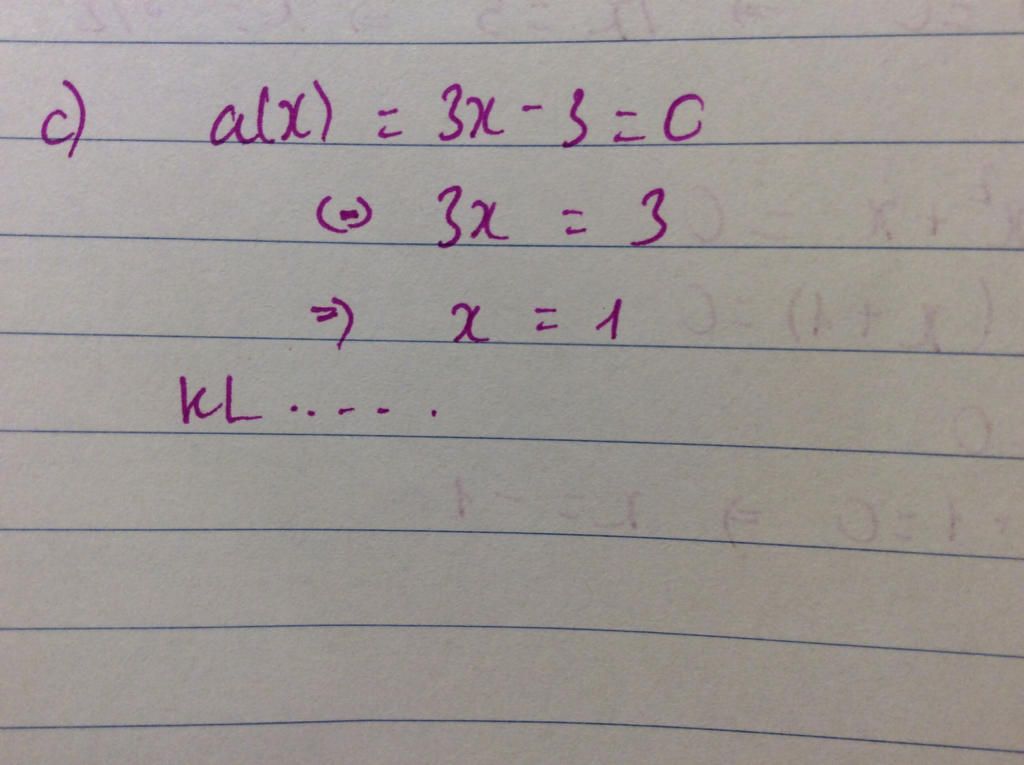 c) a(x) = 3x - 3 = 0
(=) 3x = 3
=) x = 1
KL .......